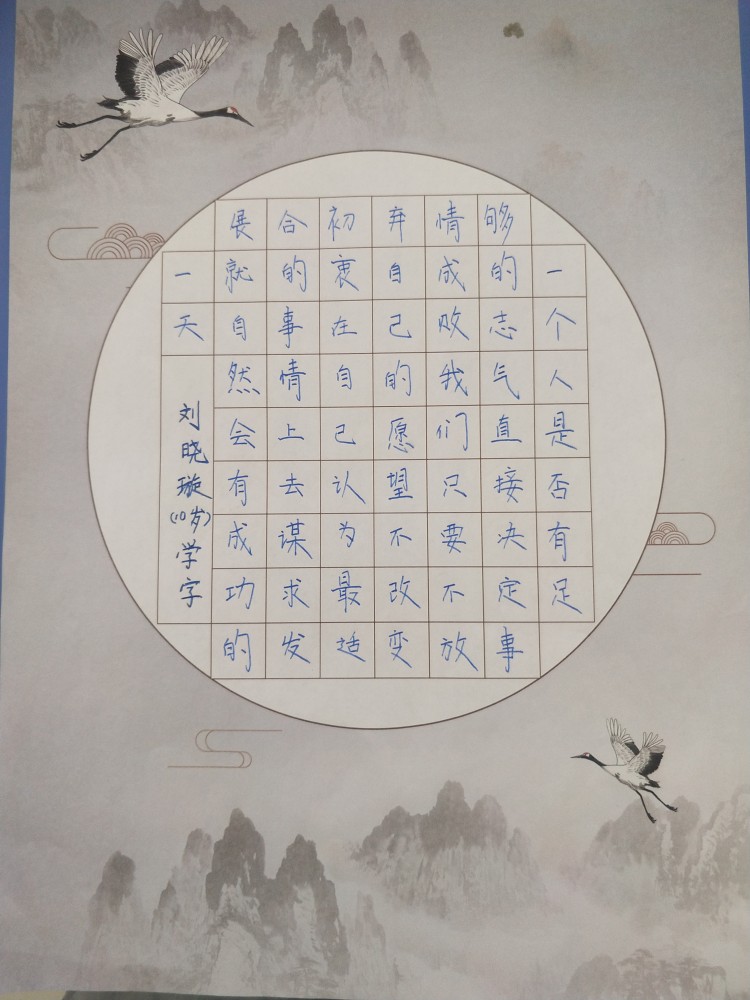 一个人是否有足
够的志气直接决定事
情成败我们只要不放
弃自己的愿望不改变
初衷在自己认为最适
合的事情上去谋求发
展就自然会有成功的
一天
刘晓璇(10岁)学字